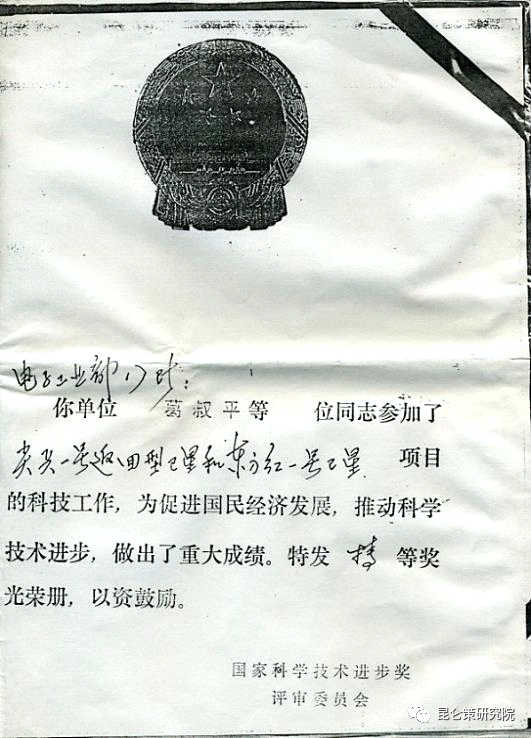 电子工业部17所：
你单位 葛叔平等 位同志参加了
尖兵一号返回型卫星和东方红一号卫星 项目
的科技工作，为促进国民经济发展，推动科学
技术进步，做出了重大成绩。特发 特 等奖
光荣册，以资鼓励。
国家科学技术进步奖
评审委员会
昆仑策研究院